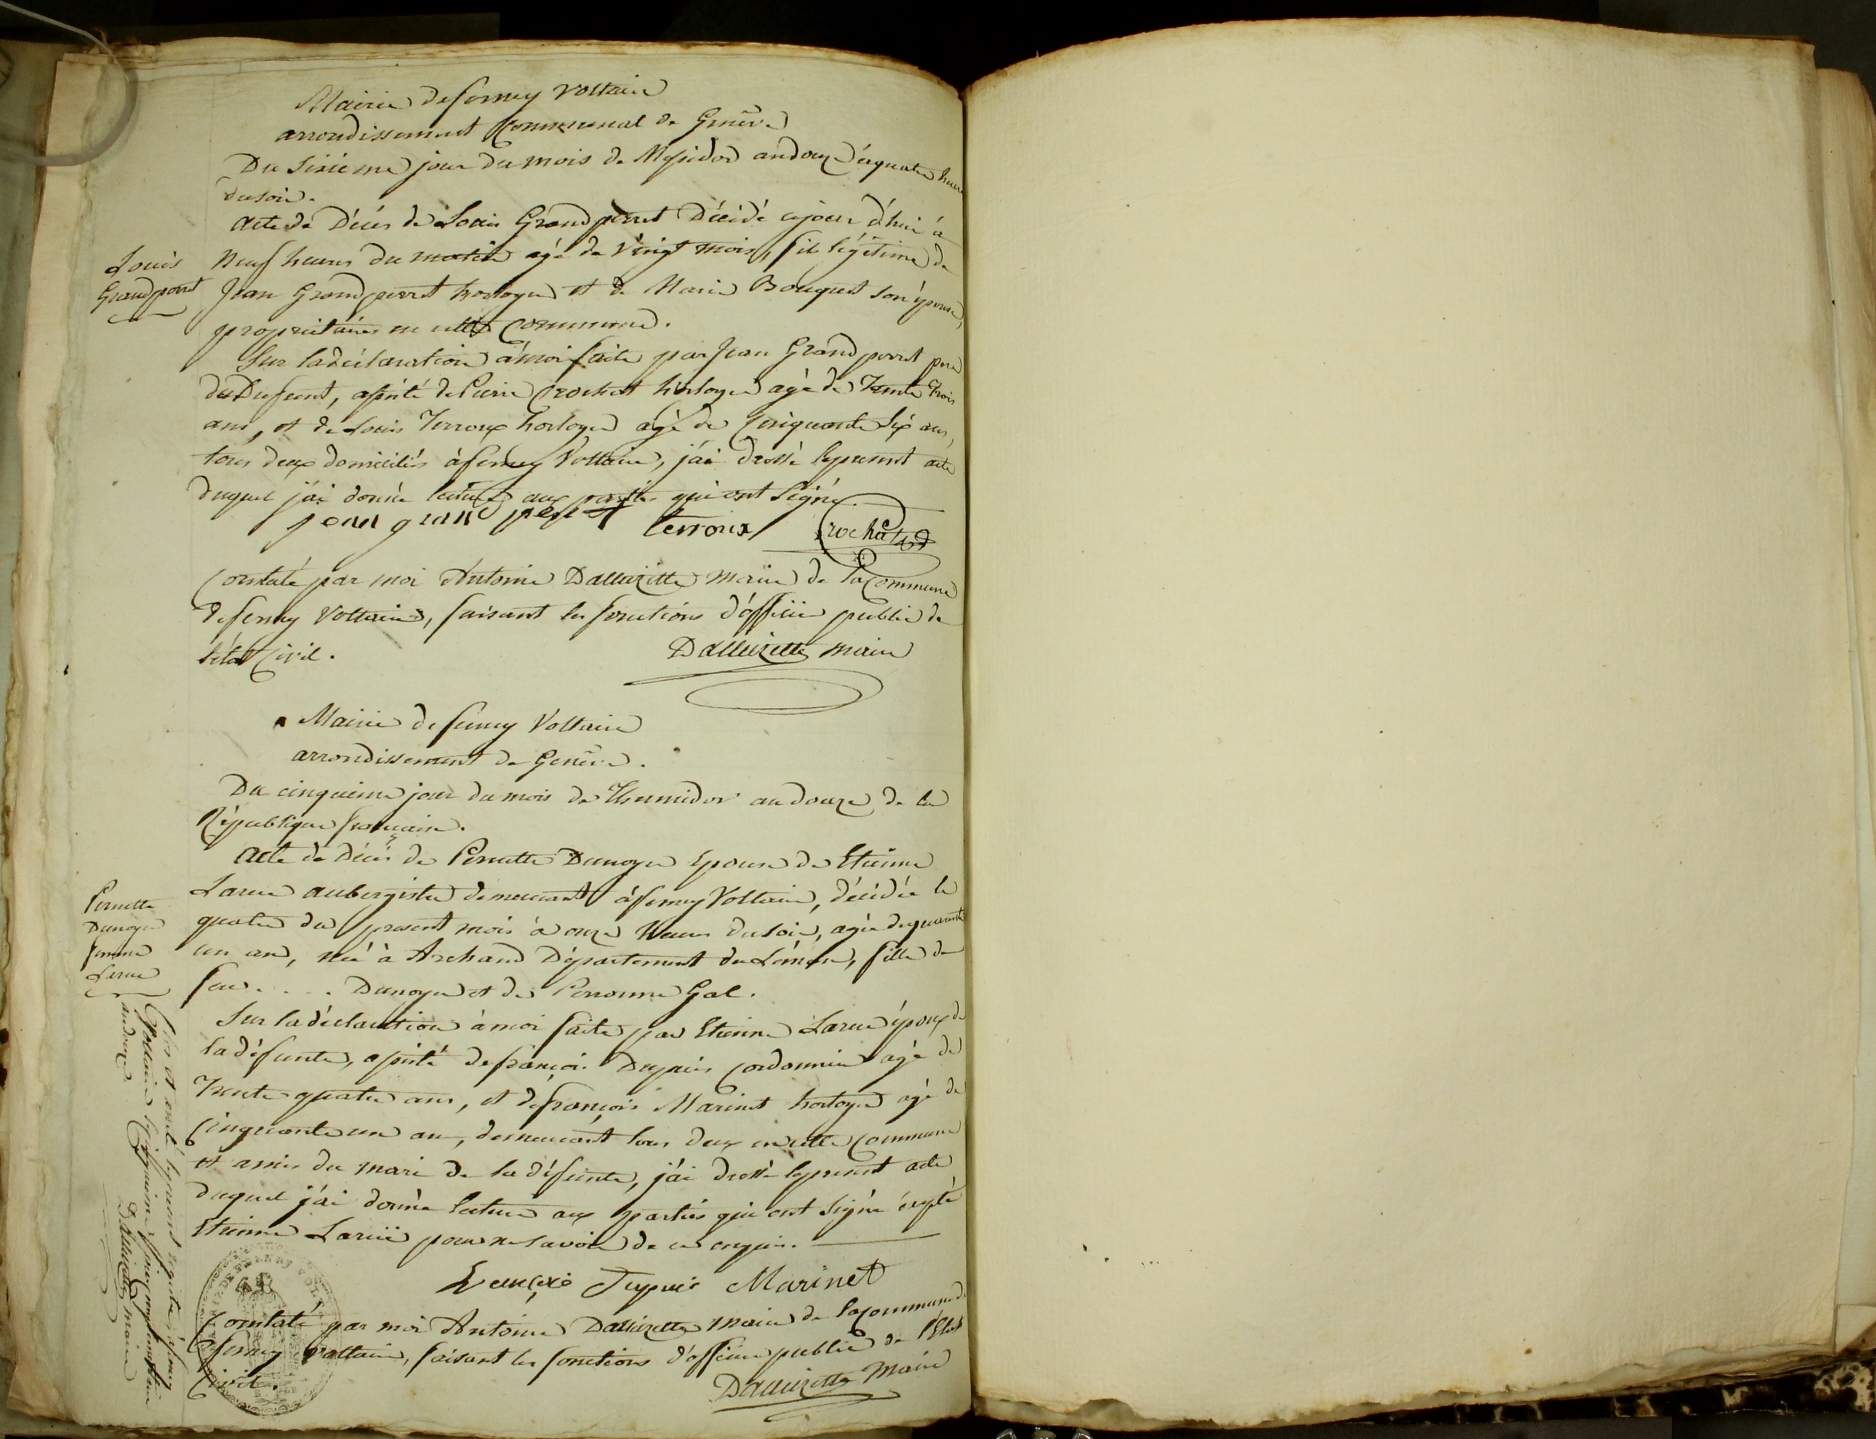 Mairie de ferney Voltaire
arrondissement Communal de Genêve
Du Sixieme jour du mois de Messidor an douze à quatre heures
du soir.
Acte de Décès de Louis Grandperret Décédé ce jour d'hui à
Neuf heures du matin agé de Vingt mois, fils légitime de
Jean Grandperret horloger et de Marie Bouquet son épouse,
propriétaires en cette Commune.
Louis
Grandperret
Sur la déclaration à moi faite par Jean Grandperret pere
du Defunt, assisté de Pierre Crochet horloger agé de Trente trois
ans, et de Louis Terroux horloger agé de Cinquante Six ans,
tous deux domiciliés à ferney Voltaire, j'ai dressé le present acte
duquel j'ai donné lecture aux parties qui ont Signé
jean granc perret terroux Crochet
Constaté par moi Antoine Dalluizette maire de la Commune
de ferney Voltaire, faisant les fonctions d'officier public de
l'état Civil.
Dalluizette maire
Mairie de ferney Voltaire
arrondissement de Genêve.
Du cinquieme jour du mois de Thermidor an douze de la
République francaise.
Acte de Décès de Pernette Dunoyer Epouse de Etienne
Larue aubergiste demeurant à ferney Voltaire, décédée le
quatre du present mois à onze heures du soir, agée de quarante
un an, née à Archand Département du Léman, fille de
feu . . . . Dunoyer et de Peronne Gal.
Pernette
Dunoyer
femme
Larue
Sur la déclaration à moi faite par Etienne Larue époux de
la défunte, assisté de françois Dupuis cordonnier agé de
Trente quatre ans, et de françois Marinet horloger agé de
Cinquante un an, demeurant tous deux en cette Commune
et amis du mari de la défunte, j'ai dressé le present acte
duquel j'ai donné lecture aux parties qui ont Signé excepté
Etienne Larue pour ne savoir de ce enquis.
francois Dupuis Marinet
Constaté par moi Antoine Dalluizette Maire de la Commune de
ferney Voltaire, faisant les fonctions d'officier public de l'Etat
Civil.
Dalluizette Maire
Clos et arrêté le present registre à ferney
an douze
Dalluizette maire